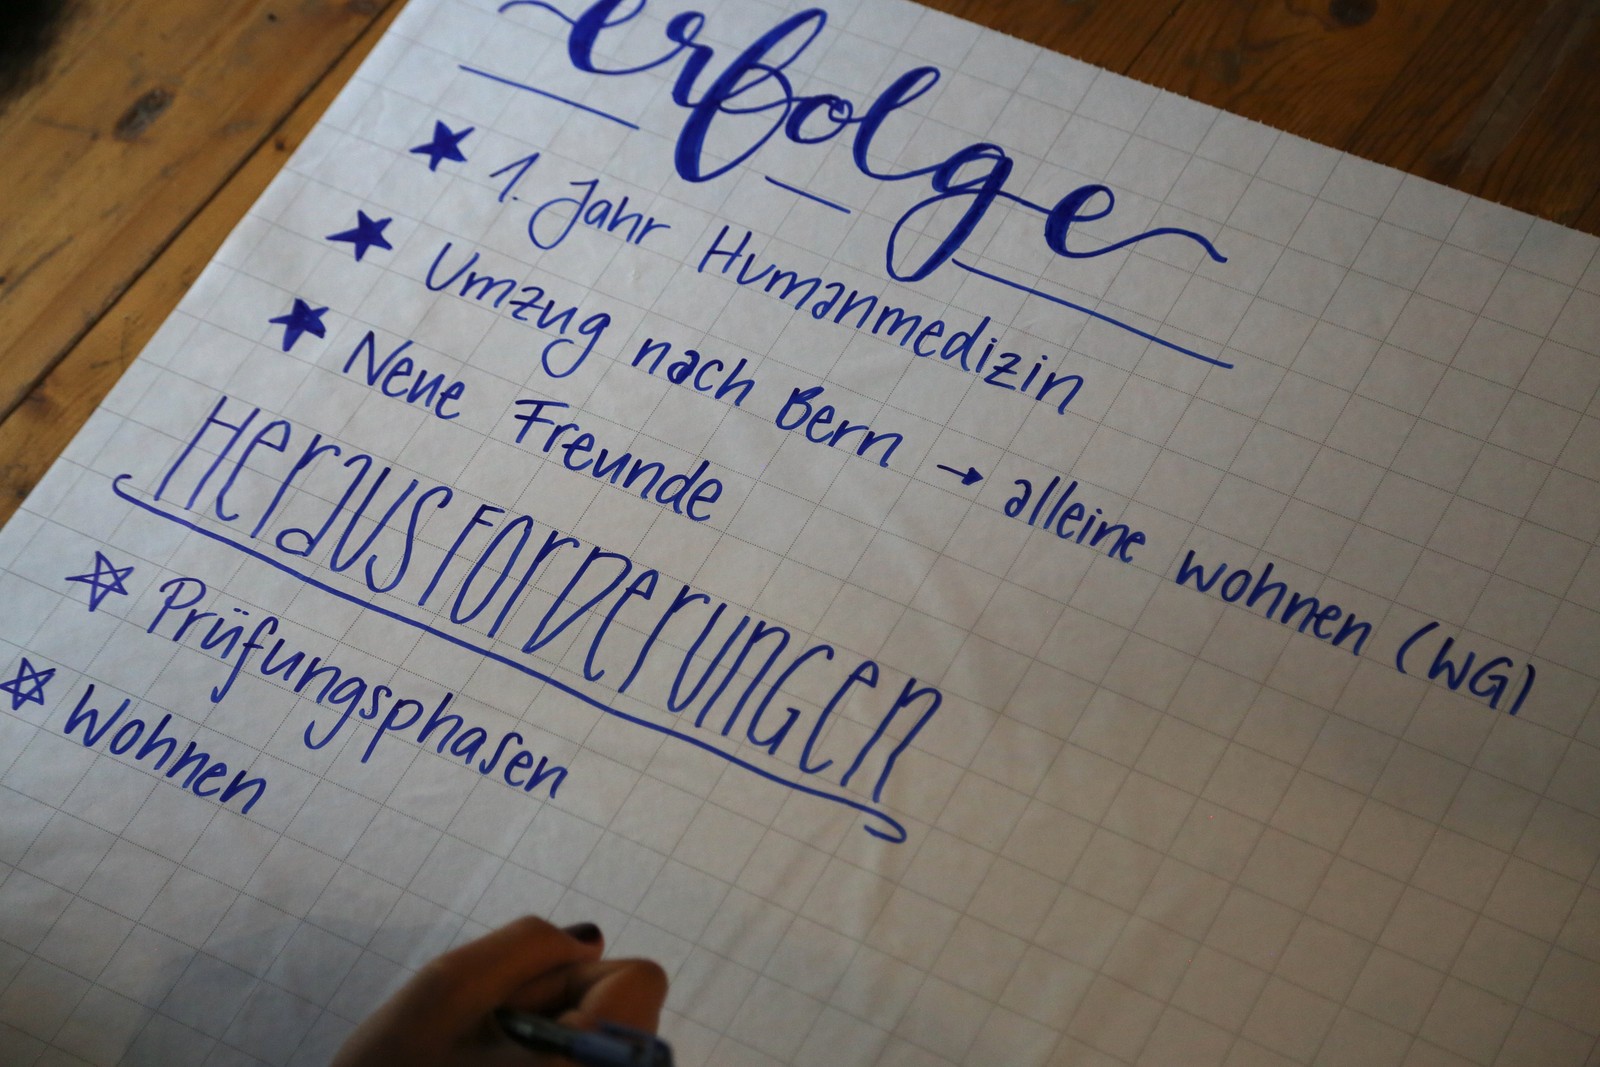 erfolge
1. Jahr Humanmedizin
Umzug nach Bern → alleine wohnen (WG)
Neue Freunde
Herausforderungen
Prüfungsphasen
Wohnen